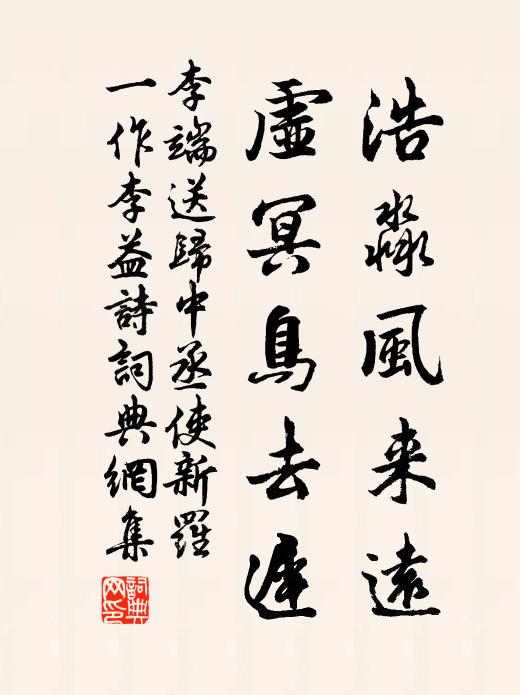 浩淼風来遠
虛冥鳥去遲
李端送歸中丞使新羅
一作李益詩詞典網集
詞典网印